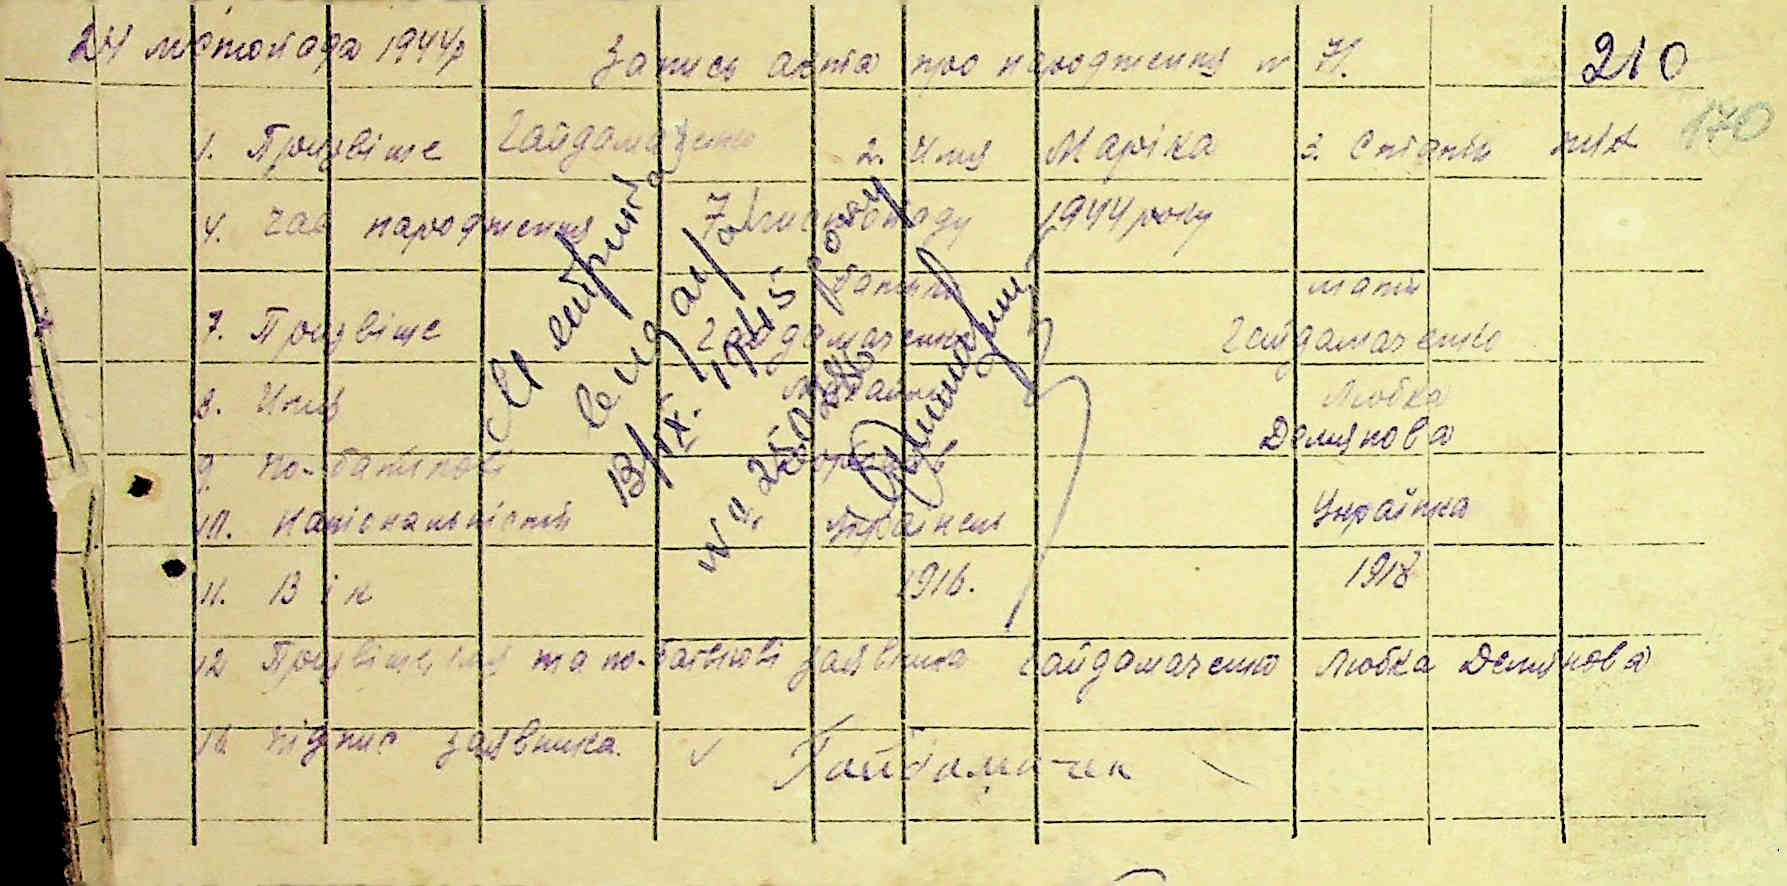 24 листопада 1944р Запись акта про народження № 71. 210
170
1. Призвіще Гайдамаченко 2. Имя Марійка 3. Стать жін
4. Час народження 7 листопаду 1944 року
батько мати
7. Призвіще Гайдамаченко Гайдамаченко
8. Имя Михайло Любка
Демянова
9. по-батькові
10. Національність Українець Українка
11. Вік 1916. 1918
12 Призвіще, имя та по-батькові заявника Гайдамаченко Любка Демянова
підпис заявника. Гайдамачен
13/IX. 1945 року